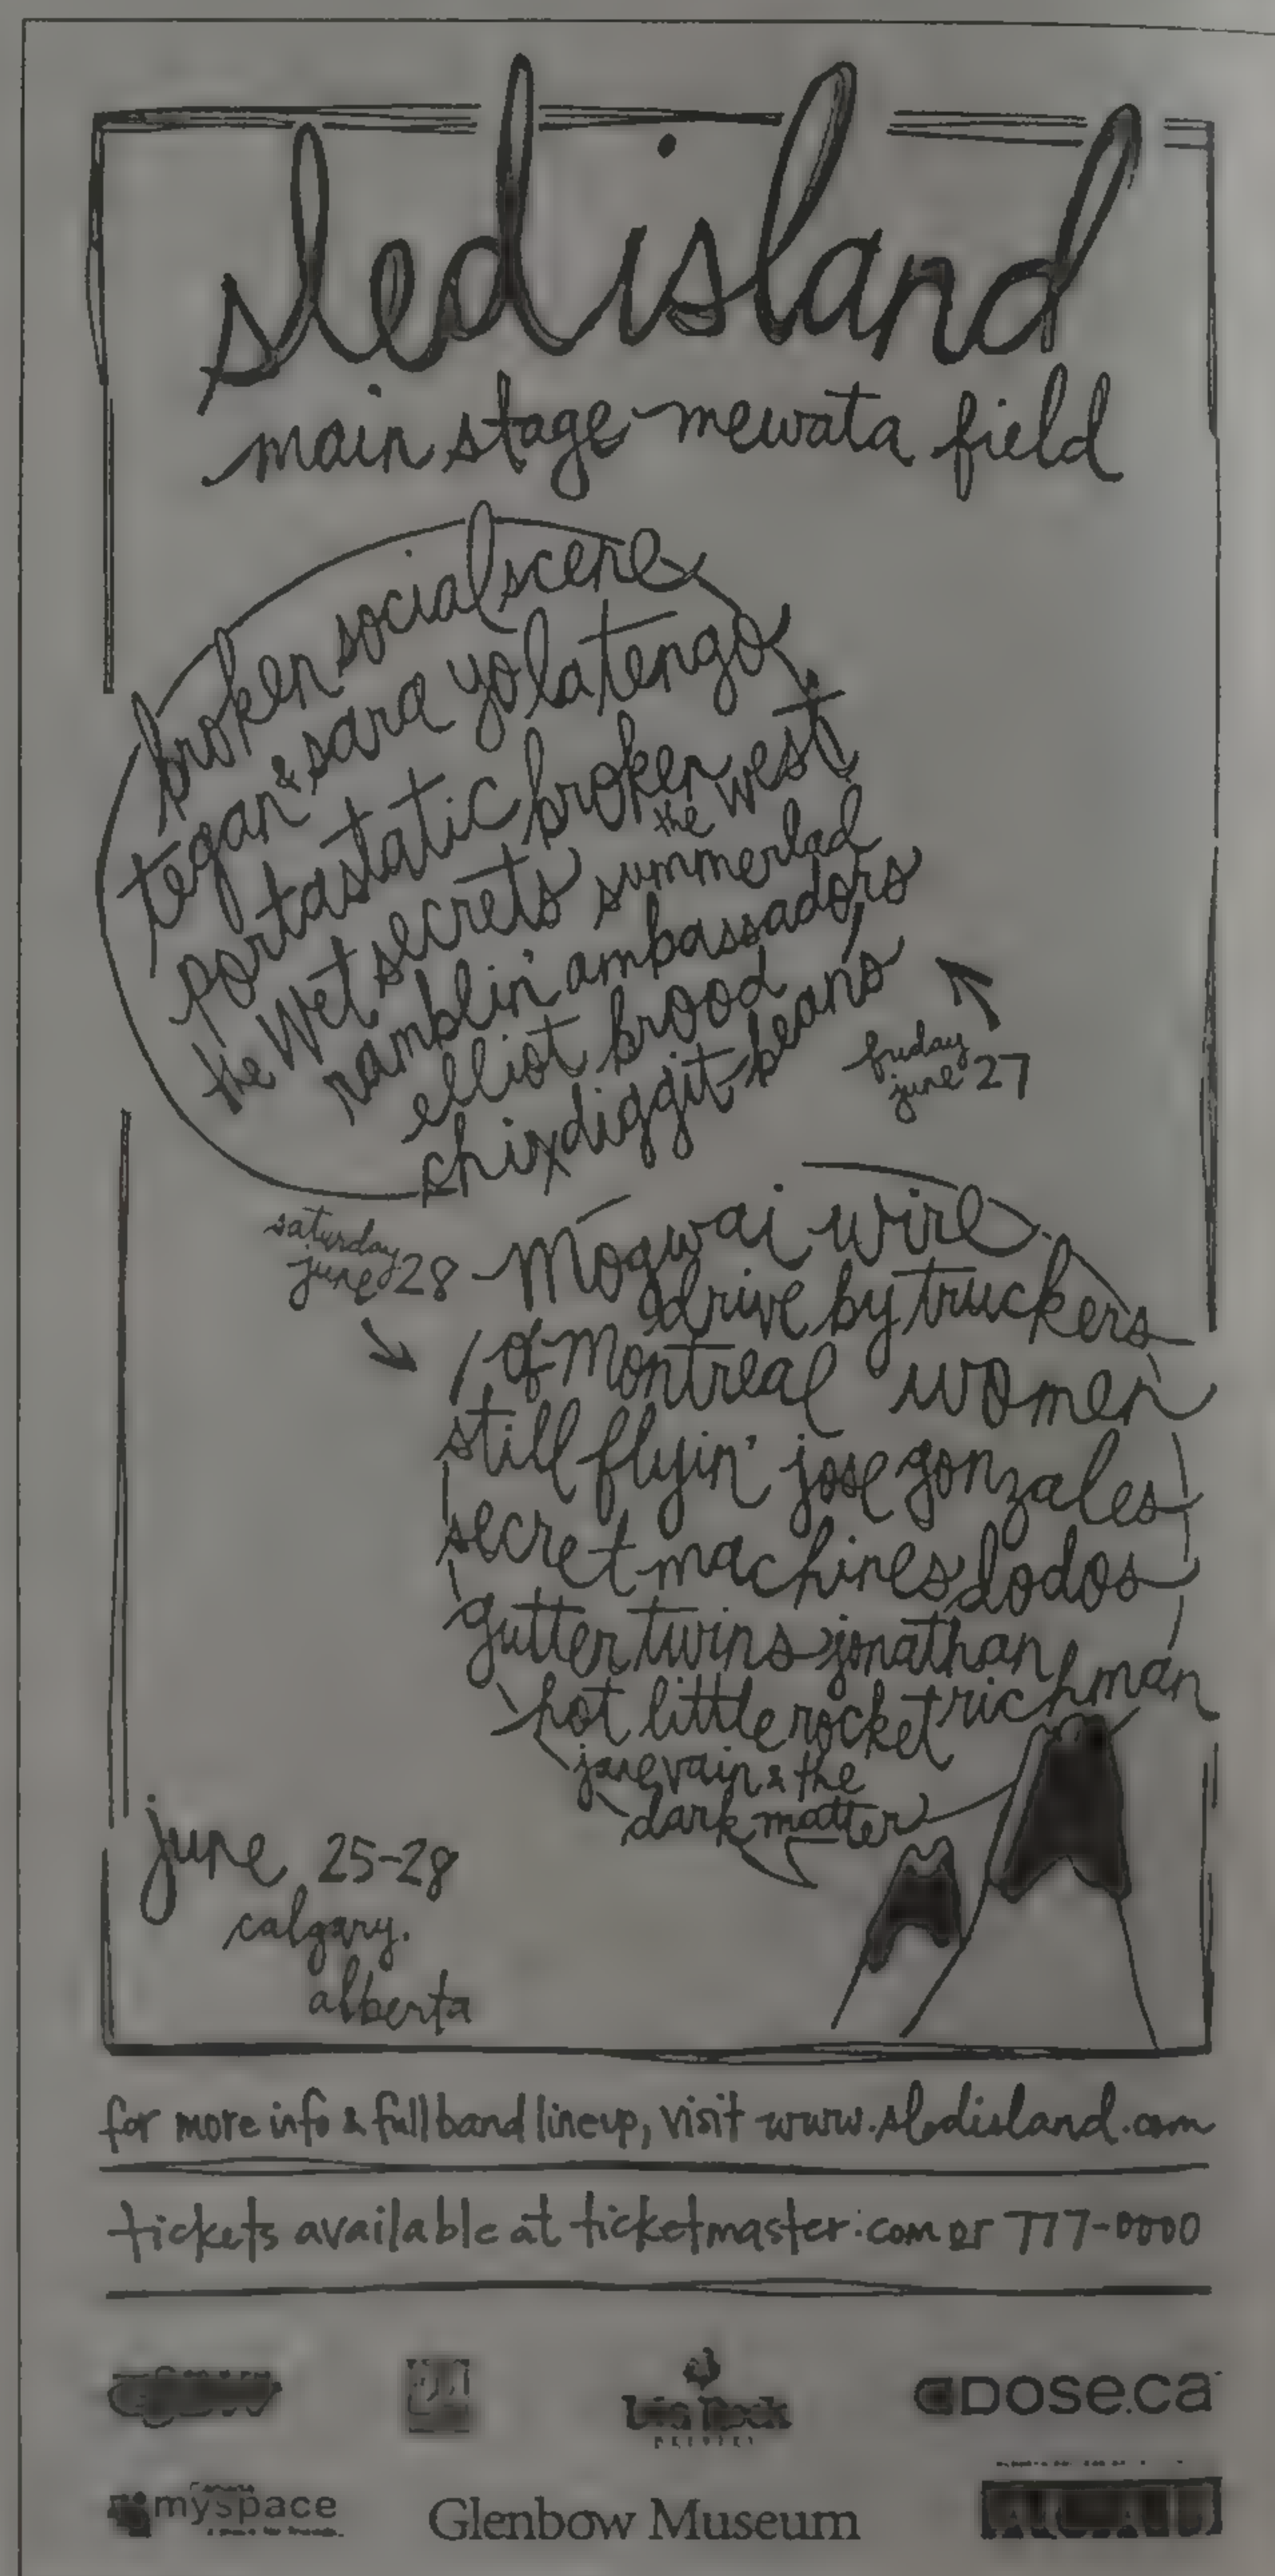 sled island
main stage - mewata field
broken social scene
tegan & sara yo la tengo
portastatic broken west
the wet secrets the summerlad
ramblin' ambassadors
elliot brood
chixdiggit beans
friday
june 27
saturday
june 28
mogwai wire
drive by truckers
of montreal women
still flyin' jose gonzales
secret machines dodos
gutter twins jonathan richman
hot little rocket
jane vain & the
dark matter
june 25-28
calgary.
alberta
for more info & full band lineup, visit www.sledisland.com
tickets available at ticketmaster.com or 777-0000
Big Rock
DOSE.CA
myspace
Glenbow Museum